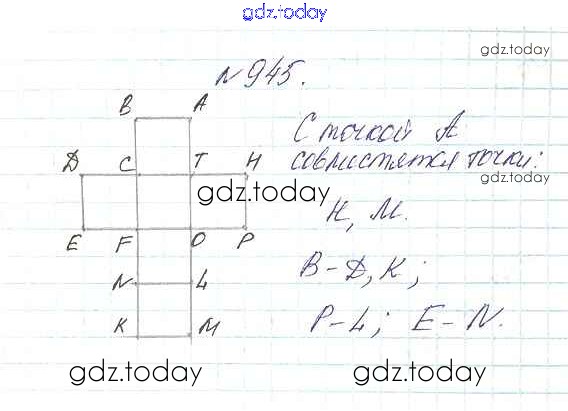 gdz.today
gdz.today
N 945.
B A
С точкой А
совместятся точки:
D C T H
gdz.today
gdz.today
H, M.
E F O P
B - D, K;
N L
P - L; E - N.
K M
gdz.today
gdz.today